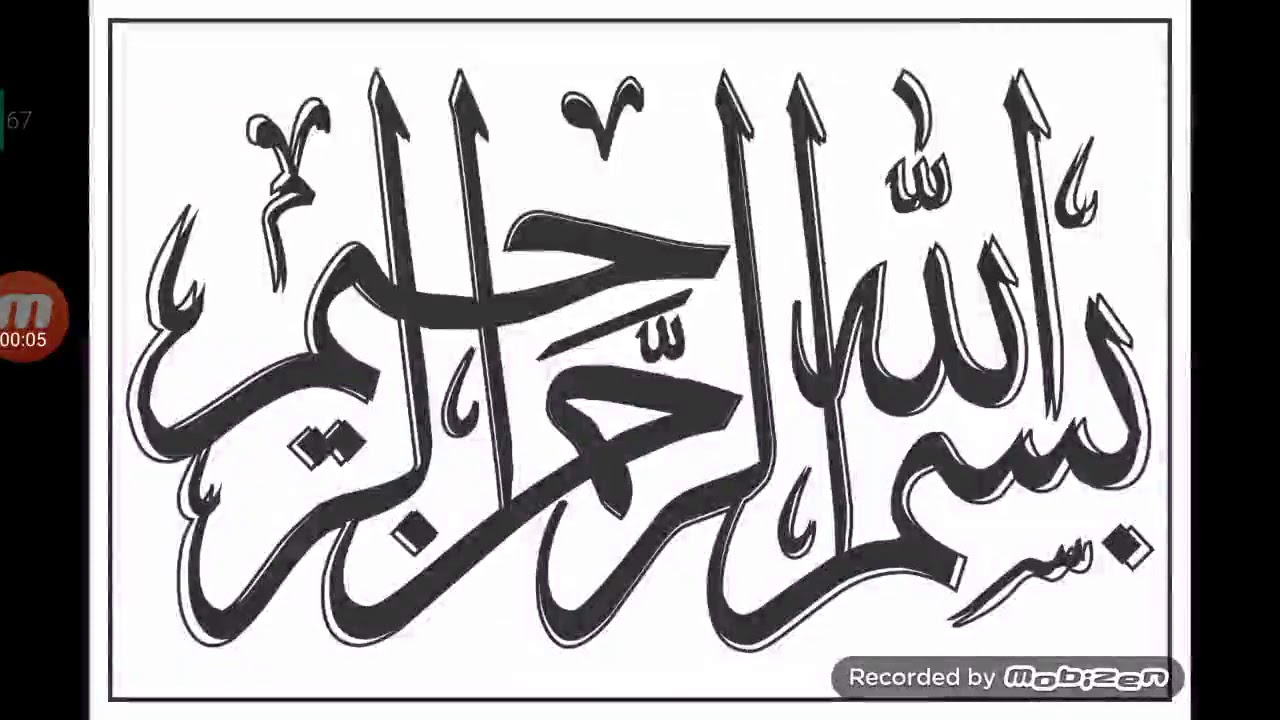 بسم الله الرحمن الرحيم
67
00:05
Recorded by mobizen